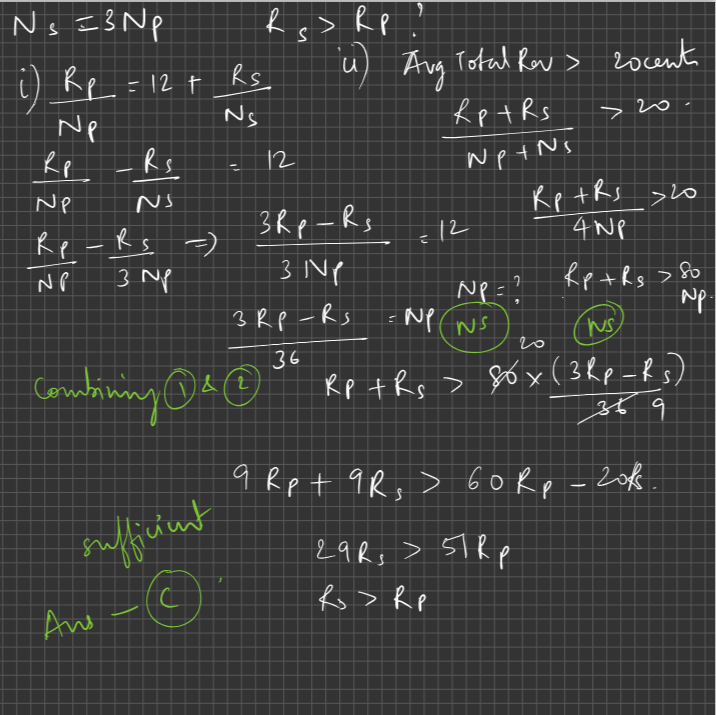 Ns = 3Np
Rs > Rp ?
i) Rp/Np = 12 + Rs/Ns
Rp/Np - Rs/Ns = 12
Rp/Np - Rs/3Np => (3Rp - Rs)/3Np = 12
(3Rp - Rs)/36 = Np
Np = ?
NS
ii) Avg Total Rev > 20cents
(Rp + Rs)/(Np + Ns) > 20.
(Rp + Rs)/4Np > 20
Rp + Rs > 80 Np.
NS
Combining ① & ②
Rp + Rs > 80 20 × (3Rp - Rs)/36 9
9Rp + 9Rs > 60Rp - 20Rs.
29Rs > 51Rp
Rs > Rp
sufficient
Ans - C